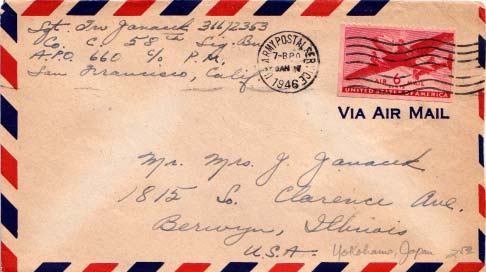 Sgt. Irv Janacek 36612353
Co. C. 58th Sig. Bn.
A.P.O. 660 c/o P.M.
San Francisco, Calif.
U.S. ARMY POSTAL SERVICE
JAN
1946
6¢
AIR MAIL
UNITED STATES OF AMERICA
VIA AIR MAIL
Mr. Mrs. J. Janacek
1815 So. Clarence Ave.
Berwyn, Illinois
U.S.A. Yokohama, Japan